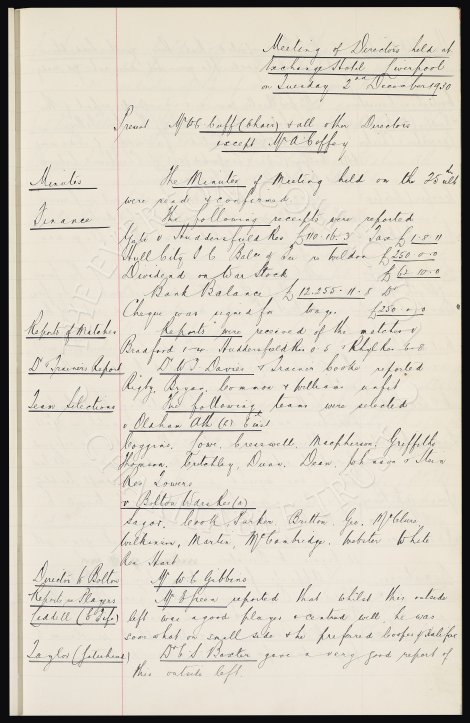 Meeting of Directors held at
Exchange Hotel Liverpool
on Tuesday 2nd December 1930
Present Mr W C Cuff (Chair) & all other Directors
except Mr A Coffey
Minutes The Minutes of Meeting held on the 25th ult
were read & confirmed.
Finance The following receipts were reported
Gate v Huddersfield Res £110-16-3 Tax £1-8-11
Hull City F C Balce of fee re Weldon £250-0-0
Dividend on War Stock £62-10-0
Bank Balance £12,255-11-8 Dr
Cheque was signed for wages £250-0-0
Reports of Matches Reports were received of the matches v
Bradford Huddersfield Res & Rhyl
Dr & Trainers Report Dr W J Davies & Trainer Cooke reported
Rigby, Bryan, Common & Williams unfit
Team Selections The following teams were selected
v Oldham Ath (h) East
Coggins, Lowe, Cresswell, Macpherson, Griffiths
Thomson, Critchley, Dunn, Dean, Johnson & Stein
Res Lowers
v Bolton Wdrs Res (a)
Sagar, Cook, Parker, Britton, Gee, McClure,
Wilkinson, Martin, McCambridge, Webster White
Res Hart
Director to Bolton Mr W C Gibbins
Report re Players Mr Green reported that whilst this outside
Liddell (E. Fife) left was a good player & centred well, he was
somewhat on small side & he prefered Cooper of Halifax
Taylor (Gateshead) Dr C S Baxter gave a very good report of
this outside left.